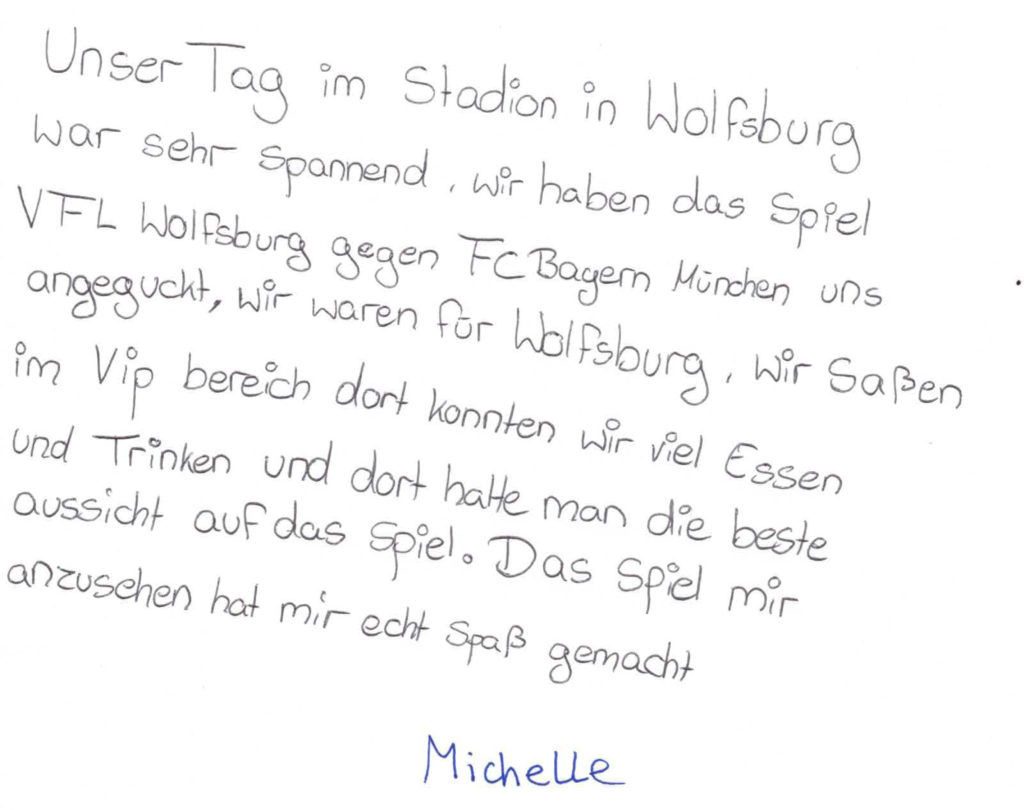 Unser Tag im Stadion in Wolfsburg
war sehr spannend, wir haben das Spiel
VFL Wolfsburg gegen FC Bayern München uns
angeguckt, wir waren für Wolfsburg, wir Saßen
im Vip bereich dort konnten wir viel Essen
und Trinken und dort hatte man die beste
aussicht auf das Spiel. Das Spiel mir
anzusehen hat mir echt Spaß gemacht
Michelle